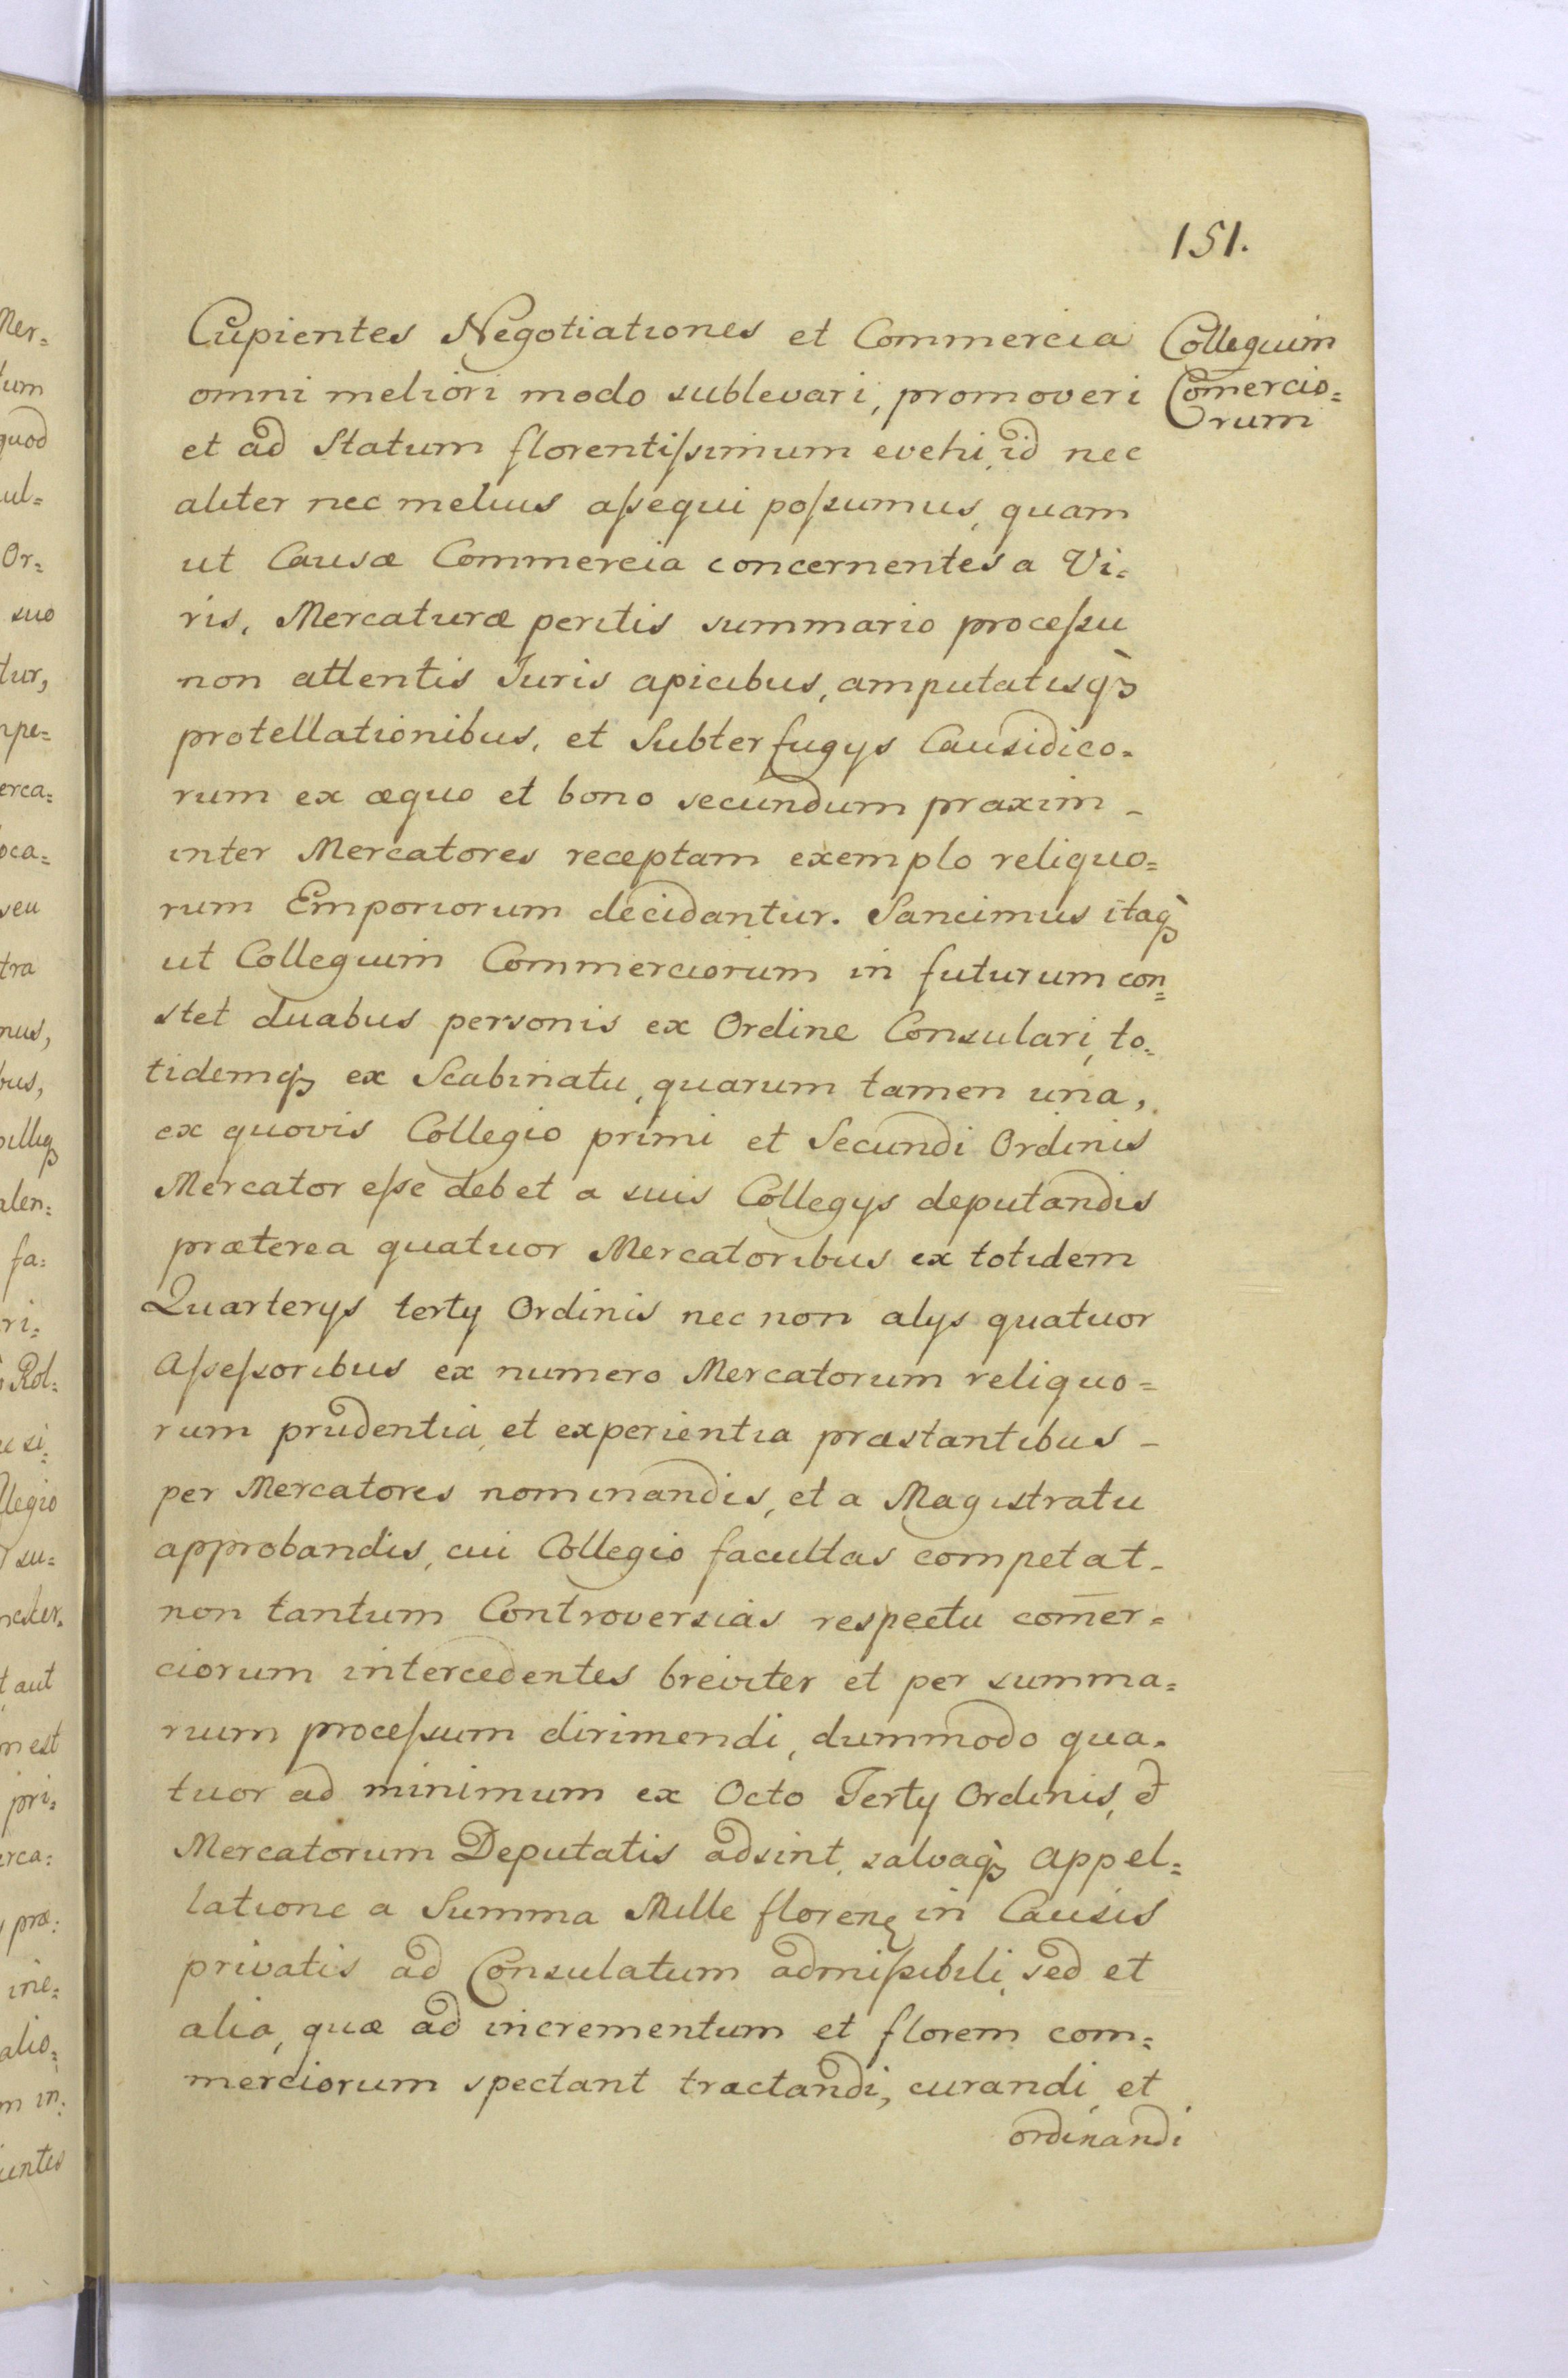 151.
Collegium
Com̅ercio=
rum
Cupientes Negotiationes et Commercia
omni meliori modo sublevari, promoveri
et ad Statum florentiſsimum evehi, id nec
aliter nec melius aſsequi poſsumus, quam
ut Causæ Commercia concernentes a Vi=
ris, Mercaturæ peritis summario proceſsu
non attentis Iuris apicibus, amputatisq́ꝫ
protellationibus, et Subterfugys Causidico=
rum ex æquo et bono secundum praxim -
inter Mercatores receptam exemplo reliquo=
rum Emporiorum decidantur. Sancimus itaq́ꝫ
ut Collegium Commerciorum in futurum con=
stet duabus personis ex Ordine Consulari, to=
tidemqꝫ ex Scabinatu, quarum tamen una,
ex quovis Collegio primi et Secundi Ordinis
Mercator eſse debet a suis Collegys deputandis
præterea quatuor Mercatoribus ex totidem
Quarterys terty Ordinis nec non alys quatuor
Aſseſsoribus ex numero Mercatorum reliquo=
rum prudentia, et experientia præstantibus -
per Mercatores nominandis, et a Magistratu
approbandis, cui Collegio facultas competat -
non tantum Controversias respectu com̅er=
ciorum intercedentes breviter et per summa=
rium proceſsum dirimendi, dummodo qua=
tuor ad minimum ex Octo Terty Ordinis, et
Mercatorum Deputatis adsint, salvaq́ꝫ Appel=
latione a Summa Mille floren in Causis
privatis ad Consulatum admiſsibili, sed et
alia, quæ ad incrementum et florem com=
merciorum spectant tractandi, curandi, et
ordinandi
Mer=
tum
quod
ul=
Or=
suo
tur,
mpe=
erca=
oca=
seu
tra
mus,
bus,
alen=
fa=
ri=
Rol=
si=
llegio
su=
t aut
m est
pri=
erca=
præ=
ine=
alio=
m in=